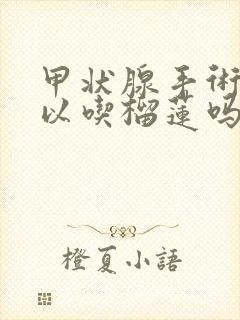 甲状腺手術
以喫榴蓮吗
橙夏小語